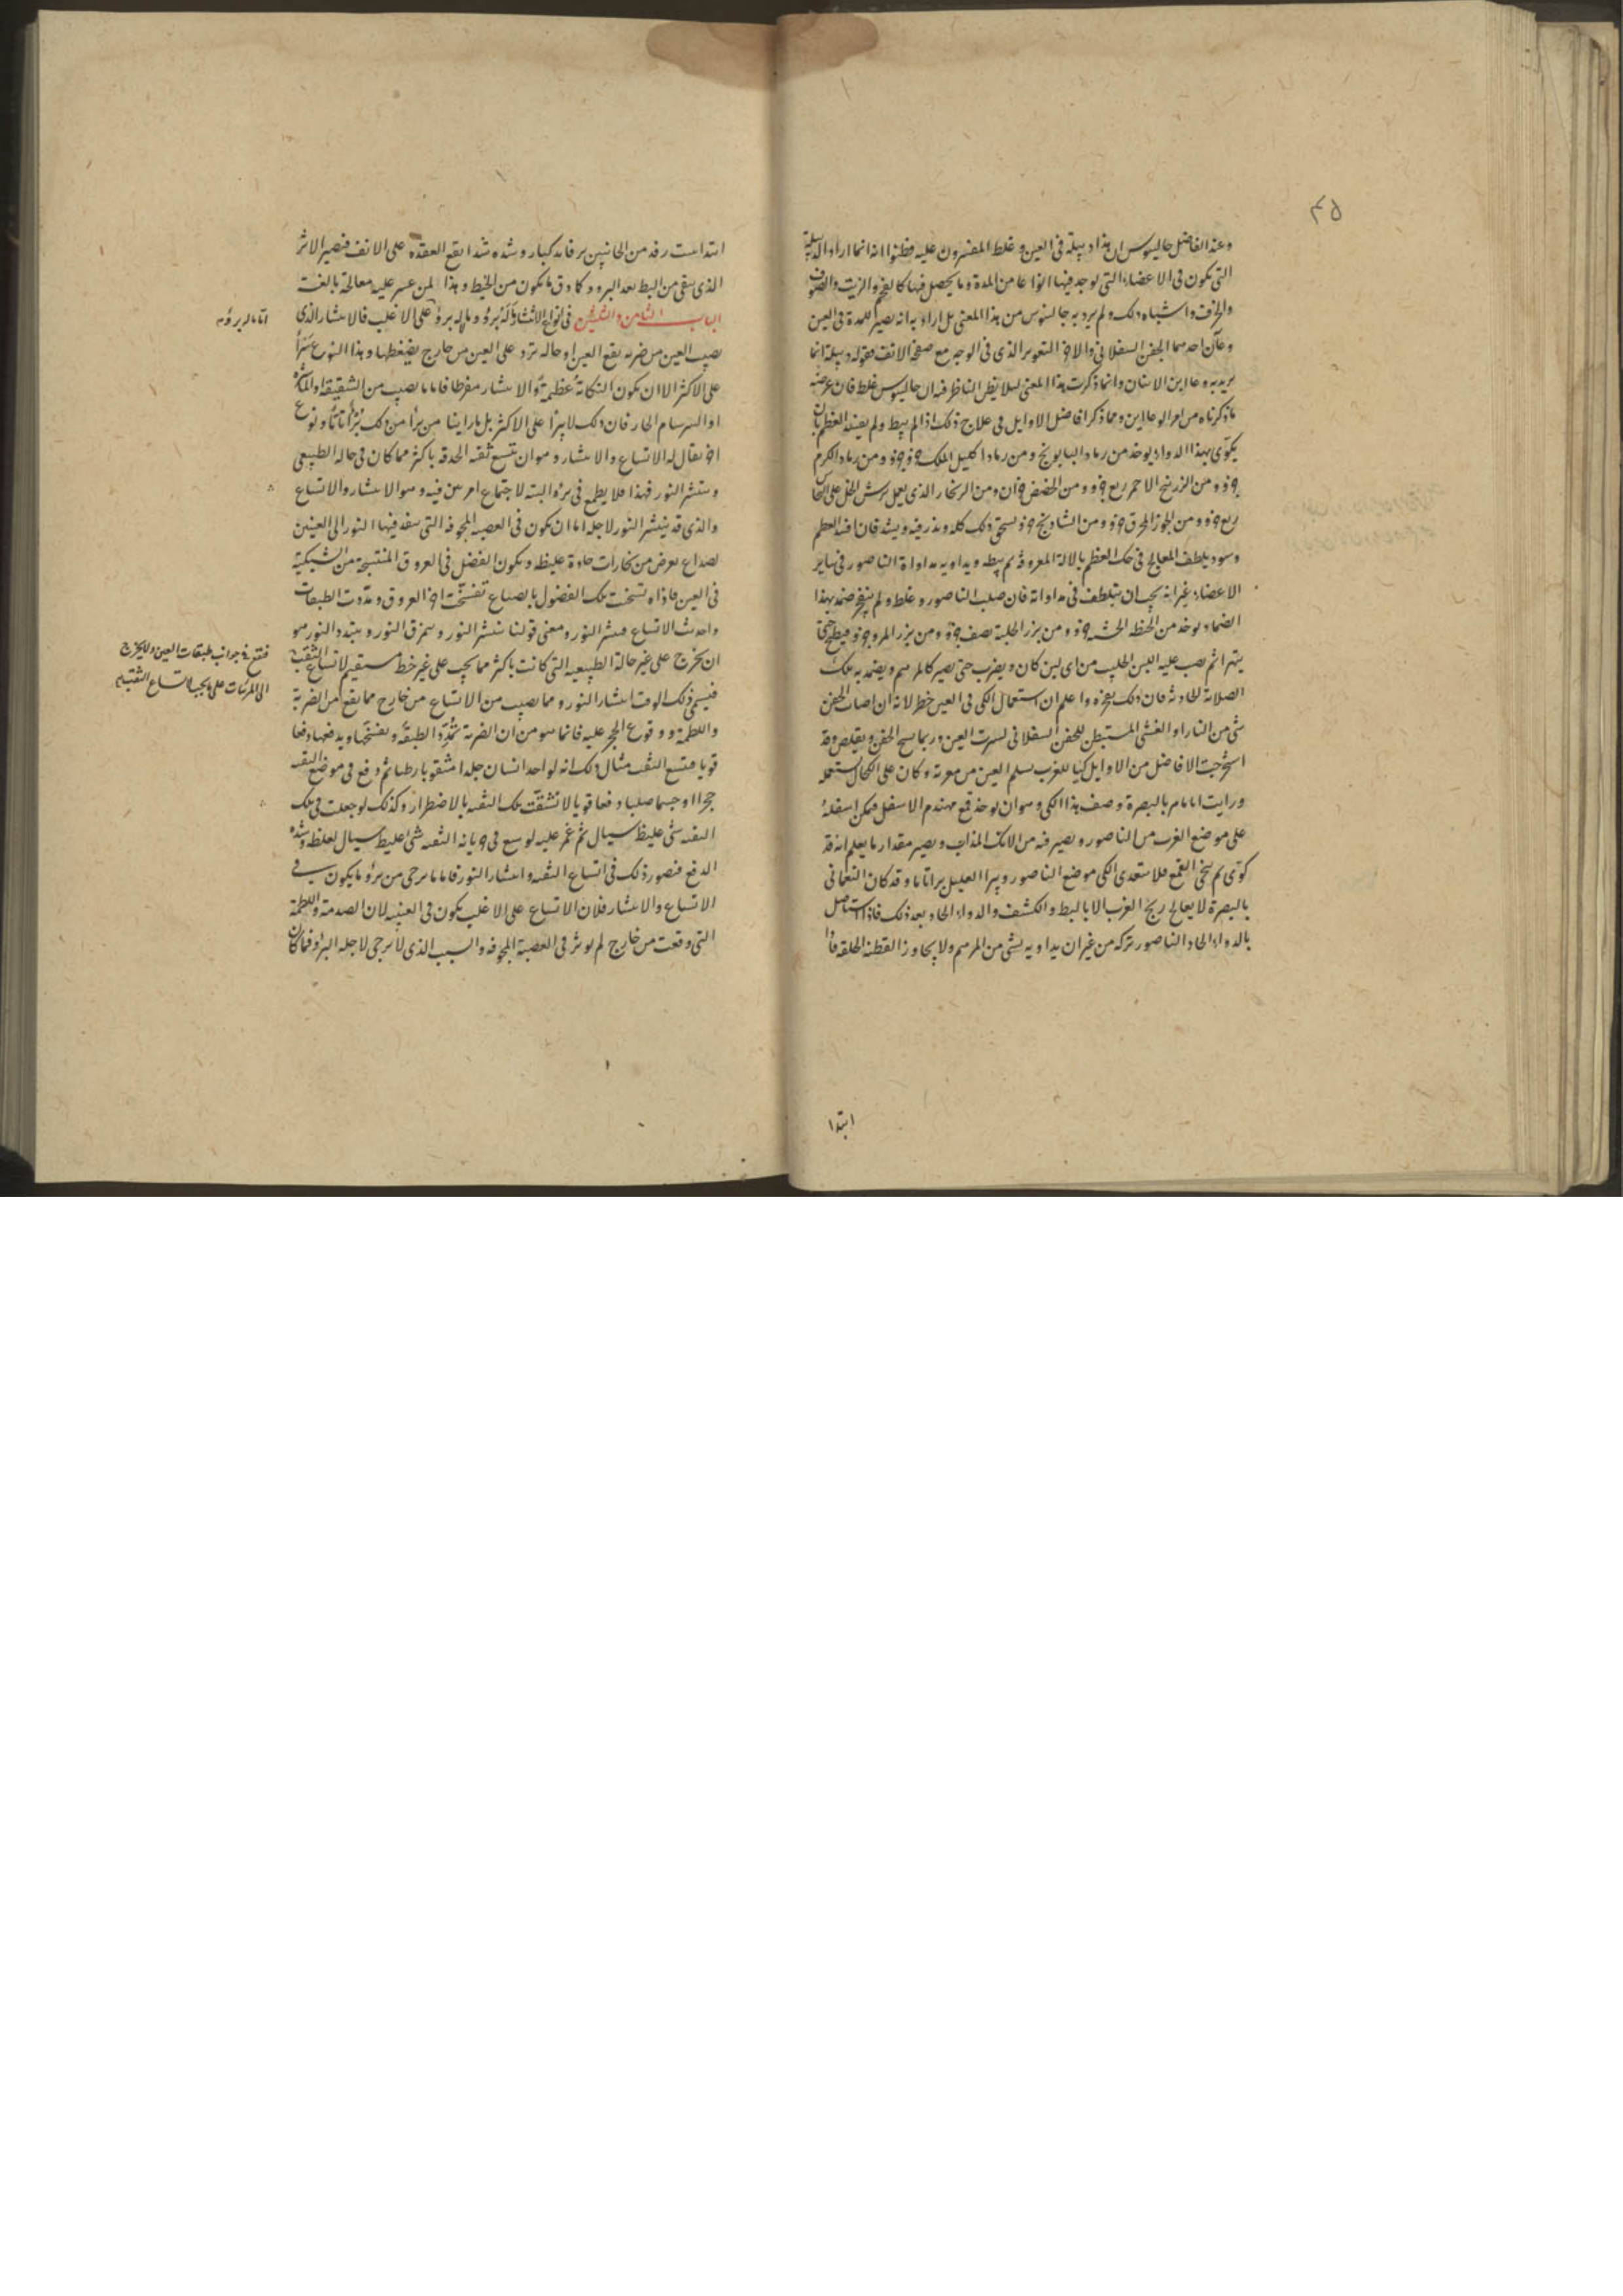 ٤٥
وعند الفاضل جالينوس ان هذا دبيلة في العين وغلط المفسرون عليه فظنوا انه انما اراد الدبيلة
التي تكون في الاعضاء التي توجد فيها انواعا من المدة وما يحصل فيها كالفحم والزيت والصوف
والخزف واشباه ذلك ولم يرد به جالينوس من هذا المعنى بل اراد به انه يصير للمدة في العين
وعاآن احدهما الجفن السفلاني والاخر التعوير الذي في الوجه مع صفحة الانف فقوله دبيلة انما
يريد به وعاءين الاثنان وانما ذكرت هذا المعنى ليلا يظن الناظر فيه ان جالينوس غلط فان غرضه
ما ذكرناه من امر الوعاءين ومما ذكر افاضل الاوايل في علاج ذلك اذا لم يبط ولم يفسد العظم بان
يكوى بهذا الدواء يوخذ من رماد البابونج ومن رماد اكليل الملك ومن رماد الكرم
ومن الزرنيخ الاحمر ربع ومن الحضض ومن الزنجار الذي يعمل برش الخل على النحاس
ربع ومن الجوز المحرق ومن الشادنج يسحق ذلك كله ويذر فيه ويشد فان فسد العظم
وسود يلطف المعالج في حك العظم بالالة المعروفة ثم يبطه ويداويه مداواة الناصور في ساير
الاعضاء غير انه يجب ان يتلطف في مداواته فان صلب الناصور وغلظ ولم ينفجر ضمد بهذا
الضماد يوخذ من الحنطة ومن بزر الحلبة نصف ومن بزر المرو فيطبخ حتى
يتهرا ثم يصب عليه اللبن الحليب من اي لبن كان ويضرب حتى يصير كالمرهم ويضمد به تلك
الصلابة الحادثة فان ذلك يفجره واعلم ان استعمال الكي في العين خطر لانه ان اصاب الجفن
شي من النار او الغشي المستبطن للجفن السفلاني لسرت العين وربما تقلص وقد
استخرجت الافاضل من الاوايل كيا للغرب يسلم العين من معرته وكان على الكحال يستعمله
ورايت اباماهر بالبصرة وصف هذا الكي وهو ان يوخذ قمع مهندم الاسفل فيمكن اسفله
على موضع الغرب من الناصور ويصير فيه من الانك المذاب ويصير مقدار ما يعلم انه قد
كوى ثم ينحي القمع فلا يتعدى الكي موضع الناصور ويبرا العليل براتاما وقد كان النعماني
بالبصرة لا يعالج ريح الغرب الا بالبط والكشف والدواء الحاد بعد ذلك فاذا استاصل
بالدواء الحاد الناصور تركه من غير ان يداويه بشي من المرهم ولا يجاوز القطنة الخلقة فاذا
ابتدا
ابتدا نبت رفد من الجانبين برفايد كبار وشده شدا يقع العقدة على الانف فيصير الاثر
الذي يبقى من البط بعد البرو دكادق ما يكون من الخيط وهذا لمن عسر عليه معالجة بالغت
الباب الثامن والثلثين في انواع الانتشار وما له برؤ وما لا برؤ على الاغلب فالانتشار الذي
يصيب العين من ضربة يقع العين او حالة ترد على العين من خارج يضغطها وهذا النوع يبرأ
على الاكثر الا ان يكون النكاية عظيمة والانتشار مفرطا فاما ما يصيب من الشقيقة
او السرسام الحار فان ذلك لا يبرأ على الاكثر بل ما راينا من برأ من ذلك برأ تاما ونوع
اخر يقال له الاتساع والانتشار وهو ان تتسع ثقبة الحدقة باكثر مما كان في حاله الطبيعي
وينتشر النور فهذا فلا يطمع في برؤه البتة لاجتماع امرين فيه وهو الانتشار والاتساع
والذي قد ينتشر النور لاجله اما ان يكون في العصبة المجوفة التي ينفد فيها النور الى العينين
لصداع يعرض من بخارات حادة غليظة ويكون الفضل في العروق المنتسجة من الشبكية
في العين فاذا سخنت تلك الفضول بالصداع تفسخت افواه العروق ومددت الطبقات
واحدث الاتساع فينشر النور ومعنى قولنا ينتشر النور ويتمزق النور ويتبدد النور هو
ان يخرج على غير حالة الطبيعية التي كانت باكثر مما يجب على غير خط مستقيم لاتساع الثقبة
فيسمى ذلك الوقت انتشار النور ومما يصيب من الاتساع من خارج مما يقع من الضربة
واللطمة ووقوع الحجر عليه فانما هو من ان الضربة تمدد الطبقة ويفسخها ويدفعها دفعا
قويا فتتسع الثقبة مثال ذلك انه لو اخد انسان جلدا مثقوبا رطبا ثم وقع في موضع الثقبة
حجرا او جسما صلبا دفعا قويا لانشقت تلك الثقبة بالاضطرار وكذلك لو جعلت في تلك
الثقبة شي غليظ سيال ثم غمز عليه لوسع في جريانه الثقبة شي غليظ سيال لغلظه وشدة
الدفع فيصور ذلك في اتساع الثقبة وانتشار النور فاما ما يرجى من برؤه ما يكون في
الاتساع والانتشار فلان الاتساع على الاغلب يكون في العينية لان الصدمة واللطمة
التي وقعت من خارج لم يوثر في العصبة المجوفة والسبب الذي لا يرجى لاجله البرؤ فما كان
فتقع في جوانب طبقات العين ولا يخرج
الى المرئيات على ما يجب لاتساع الثقبة